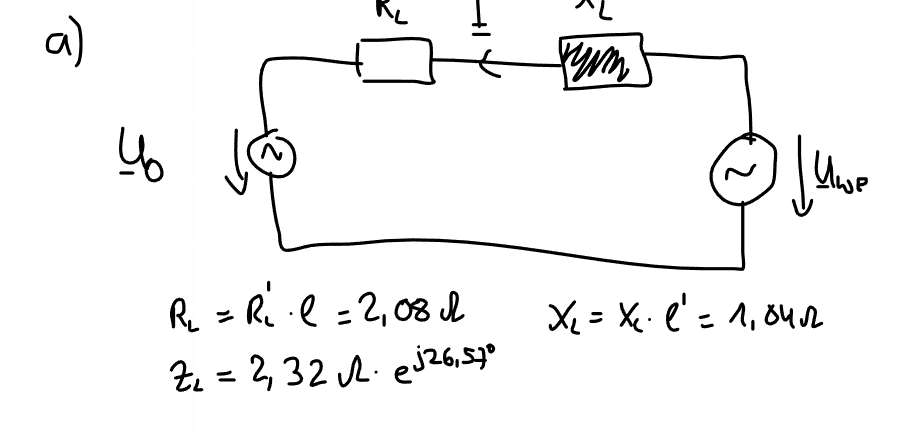 R_L I X_L
a)
U_0
U_WP
R_L = R_L' · l = 2,08 Ω X_L = X_L · l' = 1,04 Ω
Z_L = 2,32 Ω · e^j26,57°